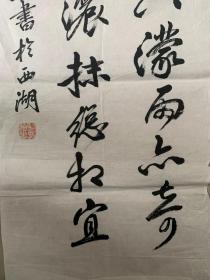 濛雨亦奇
濃抹總相宜
書於西湖